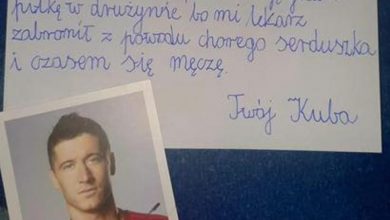 piłkę w drużynie bo mi lekarz
zabronił z powodu chorego serduszka
i czasem się męczę.
Twój Kuba